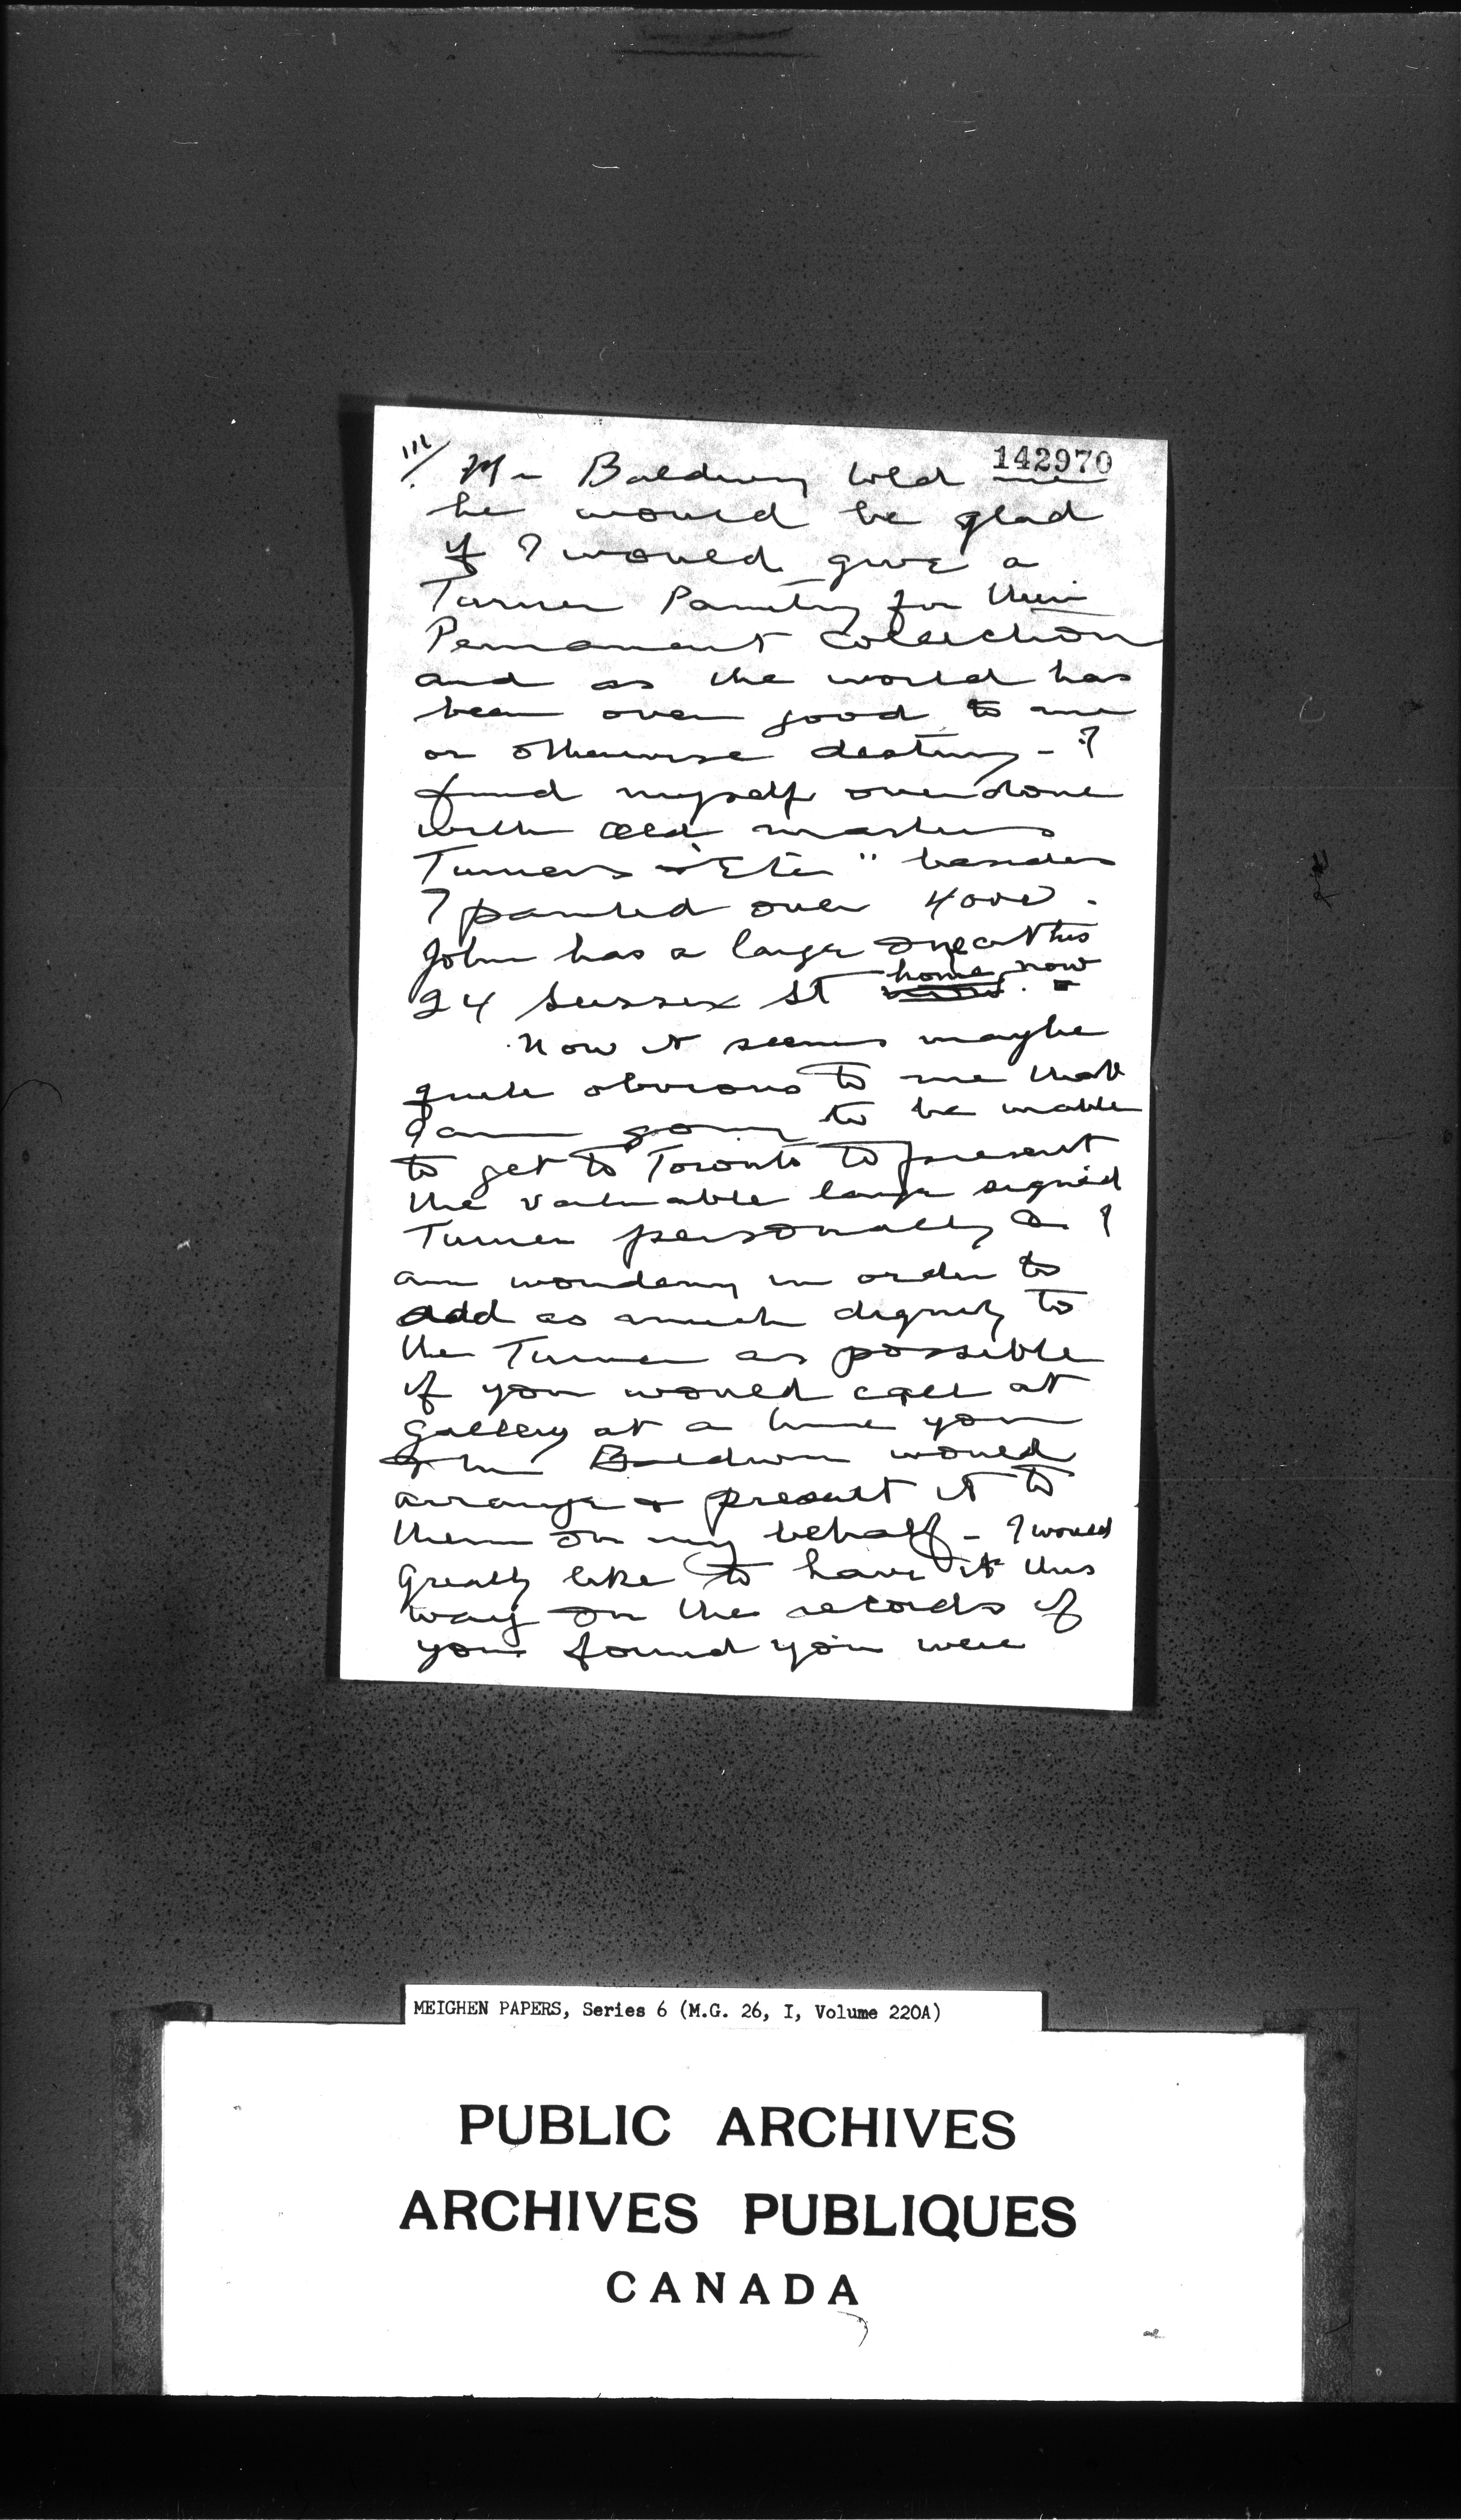 III/
142970
Mr Baldwin told me
he would be glad
if I would give a
Turner Painting for their
Permanent Collection
and as the world has
been over good to me
or otherwise destiny - I
find myself over done
with old masters
Turners "Etc" besides
I painted over 4000.
John has a large one at his
24 Sussex St home now
Now it seems maybe
quite obvious to me that
I am going to be unable
to get to Toronto to present
the valuable large signed
Turner personally & I
am wondering in order to
add as much dignity to
the Turner as possible
if you would call at
gallery at a time you
& Mr Baldwin would
arrange & present it to
them on my behalf - I would
greatly like to have it this
way on the records if
you found you were
MEIGHEN PAPERS, Series 6 (M.G. 26, I, Volume 220A)
PUBLIC ARCHIVES
ARCHIVES PUBLIQUES
CANADA